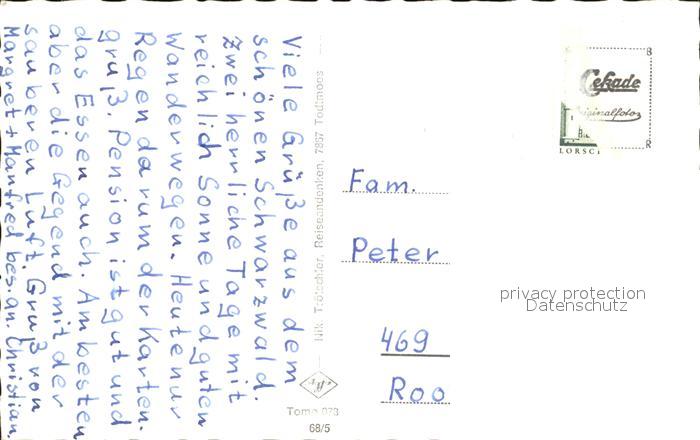 Viele Grüße aus dem
schönen Schwarzwald.
Zwei herrliche Tage mit
reichlich Sonne und guten
Wanderwegen. Heute nur
Regen darum der Karten-
gruß. Pension ist gut und
das Essen auch. Am besten
aber die Gegend mit der
sauberen Luft. Gruß von
Margret + Manfred bes. an. Christian
Nik. Trötschler, Reiseandenken, 7867 Todtmoos
Tomo 078
68/5
Cekade
Originalfoto
LORSCH
Fam.
Peter
privacy protection
Datenschutz
469
Roo